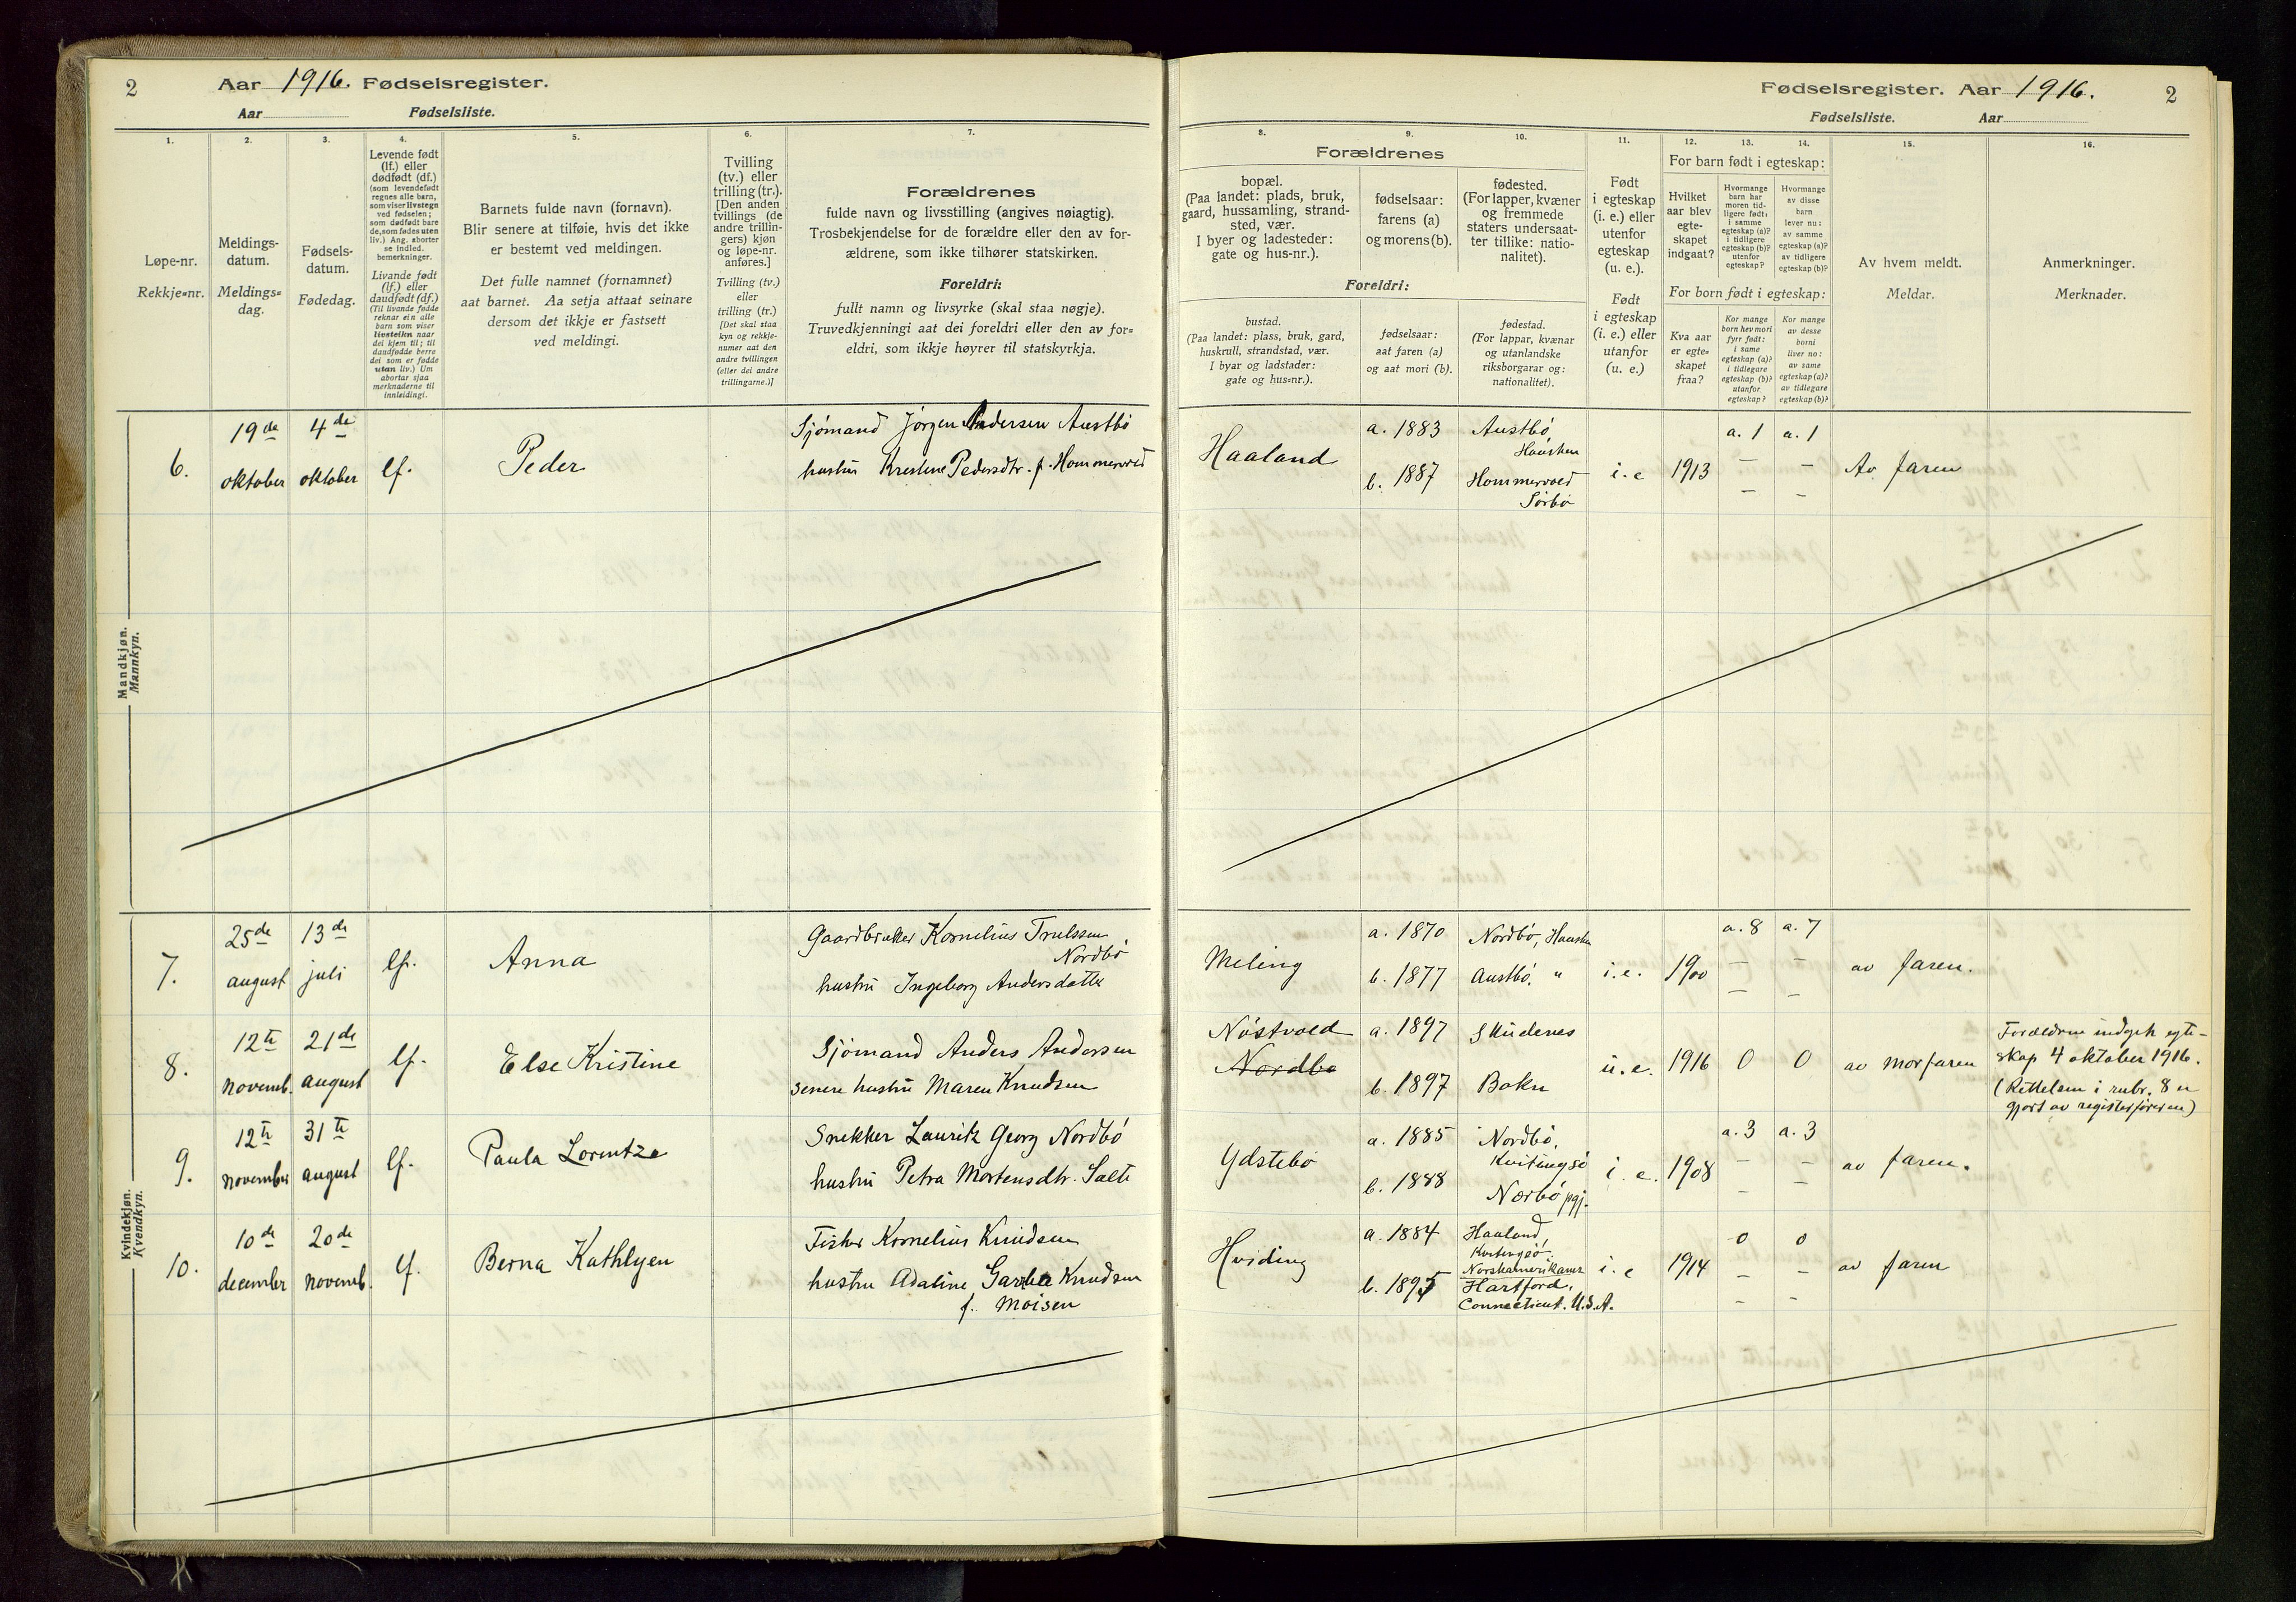 2 Aar 1916. Fødselsregister.
Aar Fødselsliste.
1. 2. 3. 4. 5. 6. 7.
Løpe-nr.
Rekkje=nr.
Meldings-
datum.
Meldings=
dag.
Fødsels-
datum.
Fødedag.
Levende født
(lf.) eller
dødfødt (df.)
(som levendefødt
regnes alle barn,
som viser livstegn
ved fødselen;
som dødfødt bare
de, som fødes uten
liv.) Ang. aborter
se indled.
bemerkninger.
Livande født
(lf.) eller
daudfødt (df.)
(Til livande fødde
reknar ein alle
barn som viser
livsteikn naar
dei kjem til; til
daudfødde berre
dei som er fødde
utan liv.) Um
abortar sjaa
merknaderne til
innleidingi.
Barnets fulde navn (fornavn).
Blir senere at tilføie, hvis det ikke
er bestemt ved meldingen.
Det fulle namnet (fornamnet)
aat barnet. Aa setja attaat seinare
dersom det ikkje er fastsett
ved meldingi.
Tvilling
(tv.) eller
trilling (tr.).
[Den anden
tvillings (de
andre trillin-
gers) kjøn
og løpe-nr.
anføres.]
Tvilling (tv.)
eller
trilling (tr.)
[Det skal staa
kyn og rekkje-
numer aat den
andre tvillingen
(eller dei andre
trillingarne.)]
Forældrenes
fulde navn og livsstilling (angives nøiagtig).
Trosbekjendelse for de forældre eller den av for-
ældrene, som ikke tilhører statskirken.
Foreldri:
fullt namn og livsyrke (skal staa nøgje).
Truvedkjenningi aat dei foreldri eller den av for=
eldri, som ikkje høyrer til statskyrkja.
Mandkjøn.
Mannkyn.
6.
19de
oktober
4de
oktober
lf.
Peder
Sjømand Jørgen Andersen Austbø
hustru Kristine Pedersdtr. f. Hommervold
Kvindekjøn.
Kvendkyn.
7.
25de
august
13de
juli
lf.
Anna
Gaardbruker Kornelius Trulssen
Nordbø
hustru Ingeborg Andersdatter
8.
12te
novemb.
21de
august
lf.
Else Kristine
Sjömand Anders Andersen
senere hustru Maren Knudsen
9.
12te
november
31te
august
lf.
Paula Lorentze
Snekker Lauritz Georg Nordbö
hustru Petra Mortensdtr. Salte
10.
10de
december
20de
novemb.
lf.
Berna Kathlyen
Fisker Kornelius Knudsen
hustru Adaline Knudsen
f. Moisen
Fødselsregister. Aar 1916. 2
Fødselsliste. Aar
8. 9. 10. 11. 12. 13. 14. 15. 16.
Forældrenes
bopæl.
(Paa landet: plads, bruk,
gaard, hussamling, strand-
sted, vær.
I byer og ladesteder:
gate og hus-nr.).
fødselsaar:
farens (a)
og morens (b).
fødested.
(For lapper, kvæner
og fremmede
staters undersaat-
ter tillike: natio-
nalitet).
Foreldri:
bustad.
(Paa landet: plass, bruk, gard,
huskrull, strandstad, vær.
I byar og ladstader:
gate og hus=nr.).
fødselsaar:
aat faren (a)
og aat mori (b).
fødestad.
(For lappar, kvænar
og utanlandske
riksborgarar og:
nationalitet).
Født
i egteskap
(i. e.) eller
utenfor
egteskap
(u. e.).
Født
i egteskap
(i. e.) eller
utanfor
(u. e.)
For barn født i egteskap:
Hvilket
aar blev
egte-
skapet
indgaat?
Hvormange
barn har
moren tid-
ligere født:
i samme
egteskap (a)?
i tidligere
egteskap (b)?
utenfor
egteskap?
Hvormange
av disse
barn
lever nu:
av samme
egteskap (a)?
av tidligere
egteskap (b)?
For born født i egteskap:
Kva aar
er egte=
skapet
fraa?
Kor mange
born hev mori
fyrr født:
i same
egteskap (a)?
i tidlegare
egteskap (b)?
utanfor
egteskap?
Kor mange
av desse
borni
liver no:
av same
egteskap (a)?
av tidlegare
egteskap (b)?
Av hvem meldt.
Meldar.
Anmerkninger.
Merknader.
Haaland
a. 1883
b. 1887
Austbø,
Hausken
Hommervold
Sørbø
i.e
1913
a. 1 a. 1
– –
– –
Av faren
Meling
a. 1870
b. 1877
Nordbø, Hausken
Austbø. "
i.e.
1900
a. 8 a. 7
– –
– –
av faren.
Nöstvold
Nordbø
a. 1897
b. 1897
Skudenes
Bokn
u.e.
1916
0 0
av morfaren
Forældrene indgik egte-
skap 4 oktober 1916.
(Rettelsen i rubr. 8 er
gjort av registerføreren)
Ydstebö
a. 1885
b. 1888
Nordbö,
Kvitingsö
Nærbö pgj.
i.e.
1908
a. 3 a. 3
– –
– –
av faren.
Hviding
a. 1884
b. 1895
Haaland,
Kvitingsö.
Norskamerikaner
Hartford,
Connecticut. U.S.A.
i.e
1914
0 0
– –
– –
av faren